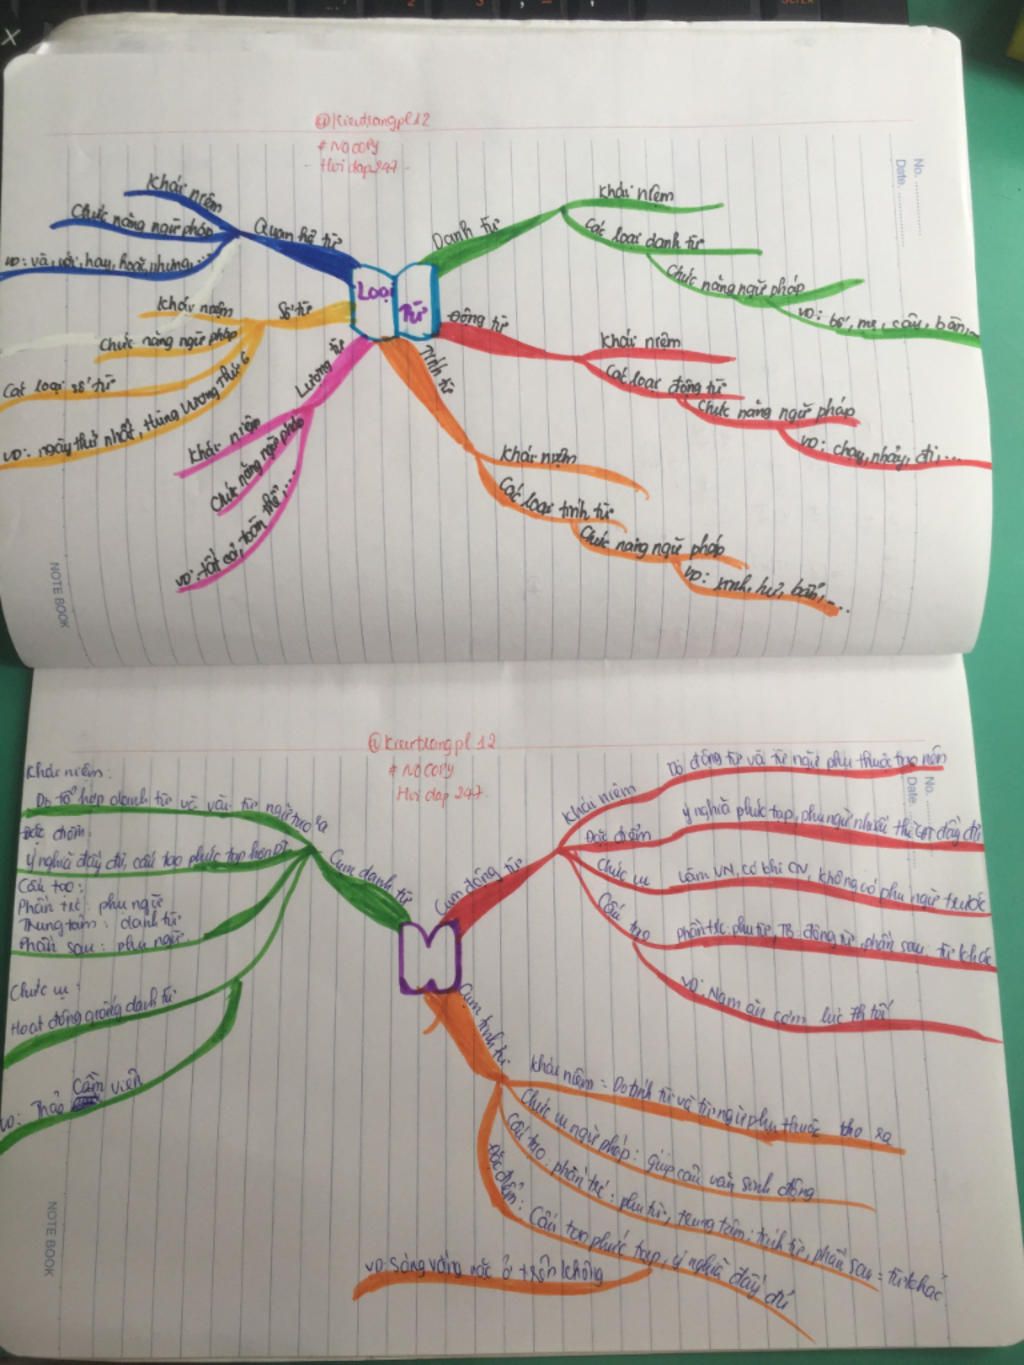 @kieutrangpl12
# NO COPY
- Hoi dap 247 -
No. ............
Date. ............
Loại
Từ
Quan hệ từ
Khái niệm
Chức năng ngữ pháp
VD: và, với, hay, hoặc, nhưng,...
Số từ
Khái niệm
Chức năng ngữ pháp
Các loại số từ
VD: ngày thứ nhất, Hùng Vương thứ 6
Lượng từ
Khái niệm
Chức năng ngữ pháp
VD: tất cả, toàn thể,...
Danh từ
Khái niệm
Các loại danh từ
Chức năng ngữ pháp
VD: bố, mẹ, cậu, bàn,...
Động từ
Khái niệm
Các loại động từ
Chức năng ngữ pháp
VD: chạy, nhảy, đi,...
Tính từ
Khái niệm
Các loại tính từ
Chức năng ngữ pháp
VD: xinh, hư, bẩn,...
NOTE BOOK
@kieutrangpl12
# NO COPY
Hoi dap 247
No. ............
Date. ............
Cụm danh từ
Khái niệm:
Do tổ hợp danh từ và vài từ ngữ tạo ra
Đặc điểm:
Ý nghĩa đầy đủ, cấu tạo phức tạp hơn DT
Cấu tạo:
Phần trc: phụ ngữ
Trung tâm: danh từ
Phần sau: phụ ngữ
Chức vụ:
Hoạt động giống danh từ
VD: Thảo Cầm viên
Cụm động từ
Khái niệm
Do động từ và từ ngữ phụ thuộc tạo nên
Đặc điểm
ý nghĩa phức tạp, phụ ngữ nhiều thì CĐT đầy đủ
Chức vụ
Làm VN, có khi CN, không có phụ ngữ trước
Cấu tạo
Phần trc: phụ từ, TT: động từ, phần sau: từ khác
VD: Nam ăn cơm lúc 7h tối
Cụm tính từ
Khái niệm: Do tính từ và từ ngữ phụ thuộc tạo ra
Chức vụ ngữ pháp: giúp câu văn sinh động
Cấu tạo: phần trc: phụ từ, trung tâm: tính từ, phần sau: từ khác
Đặc điểm: Cấu tạo phức tạp, ý nghĩa đầy đủ
VD: Sáng vằng vặc ở trên không
NOTE BOOK